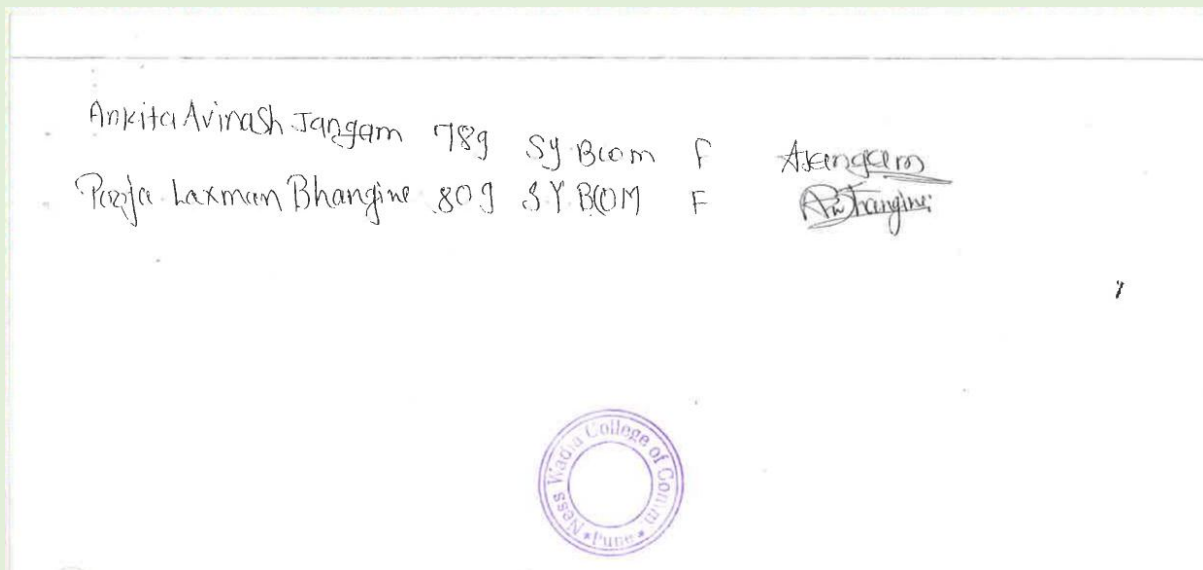 Ankita Avinash Jangam 789 SY Bcom F AJangam
Pooja Laxman Bhangine 809 S.Y BCOM F
Ness Wadia College of Comm. * Pune *